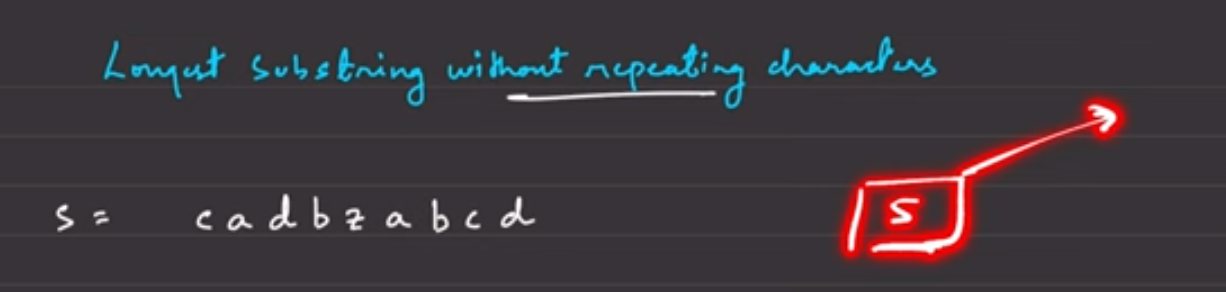 Longest substring without repeating characters
s = c a d b z a b c d
S